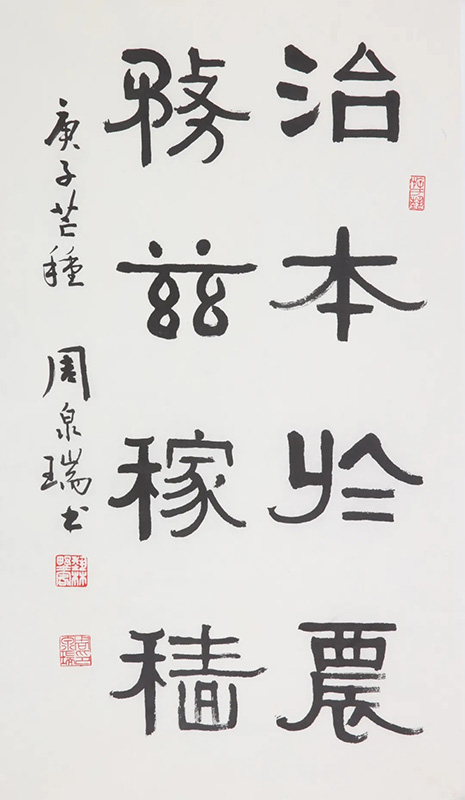 治本於農
務茲稼穡
庚子芒種 周泉瑞书